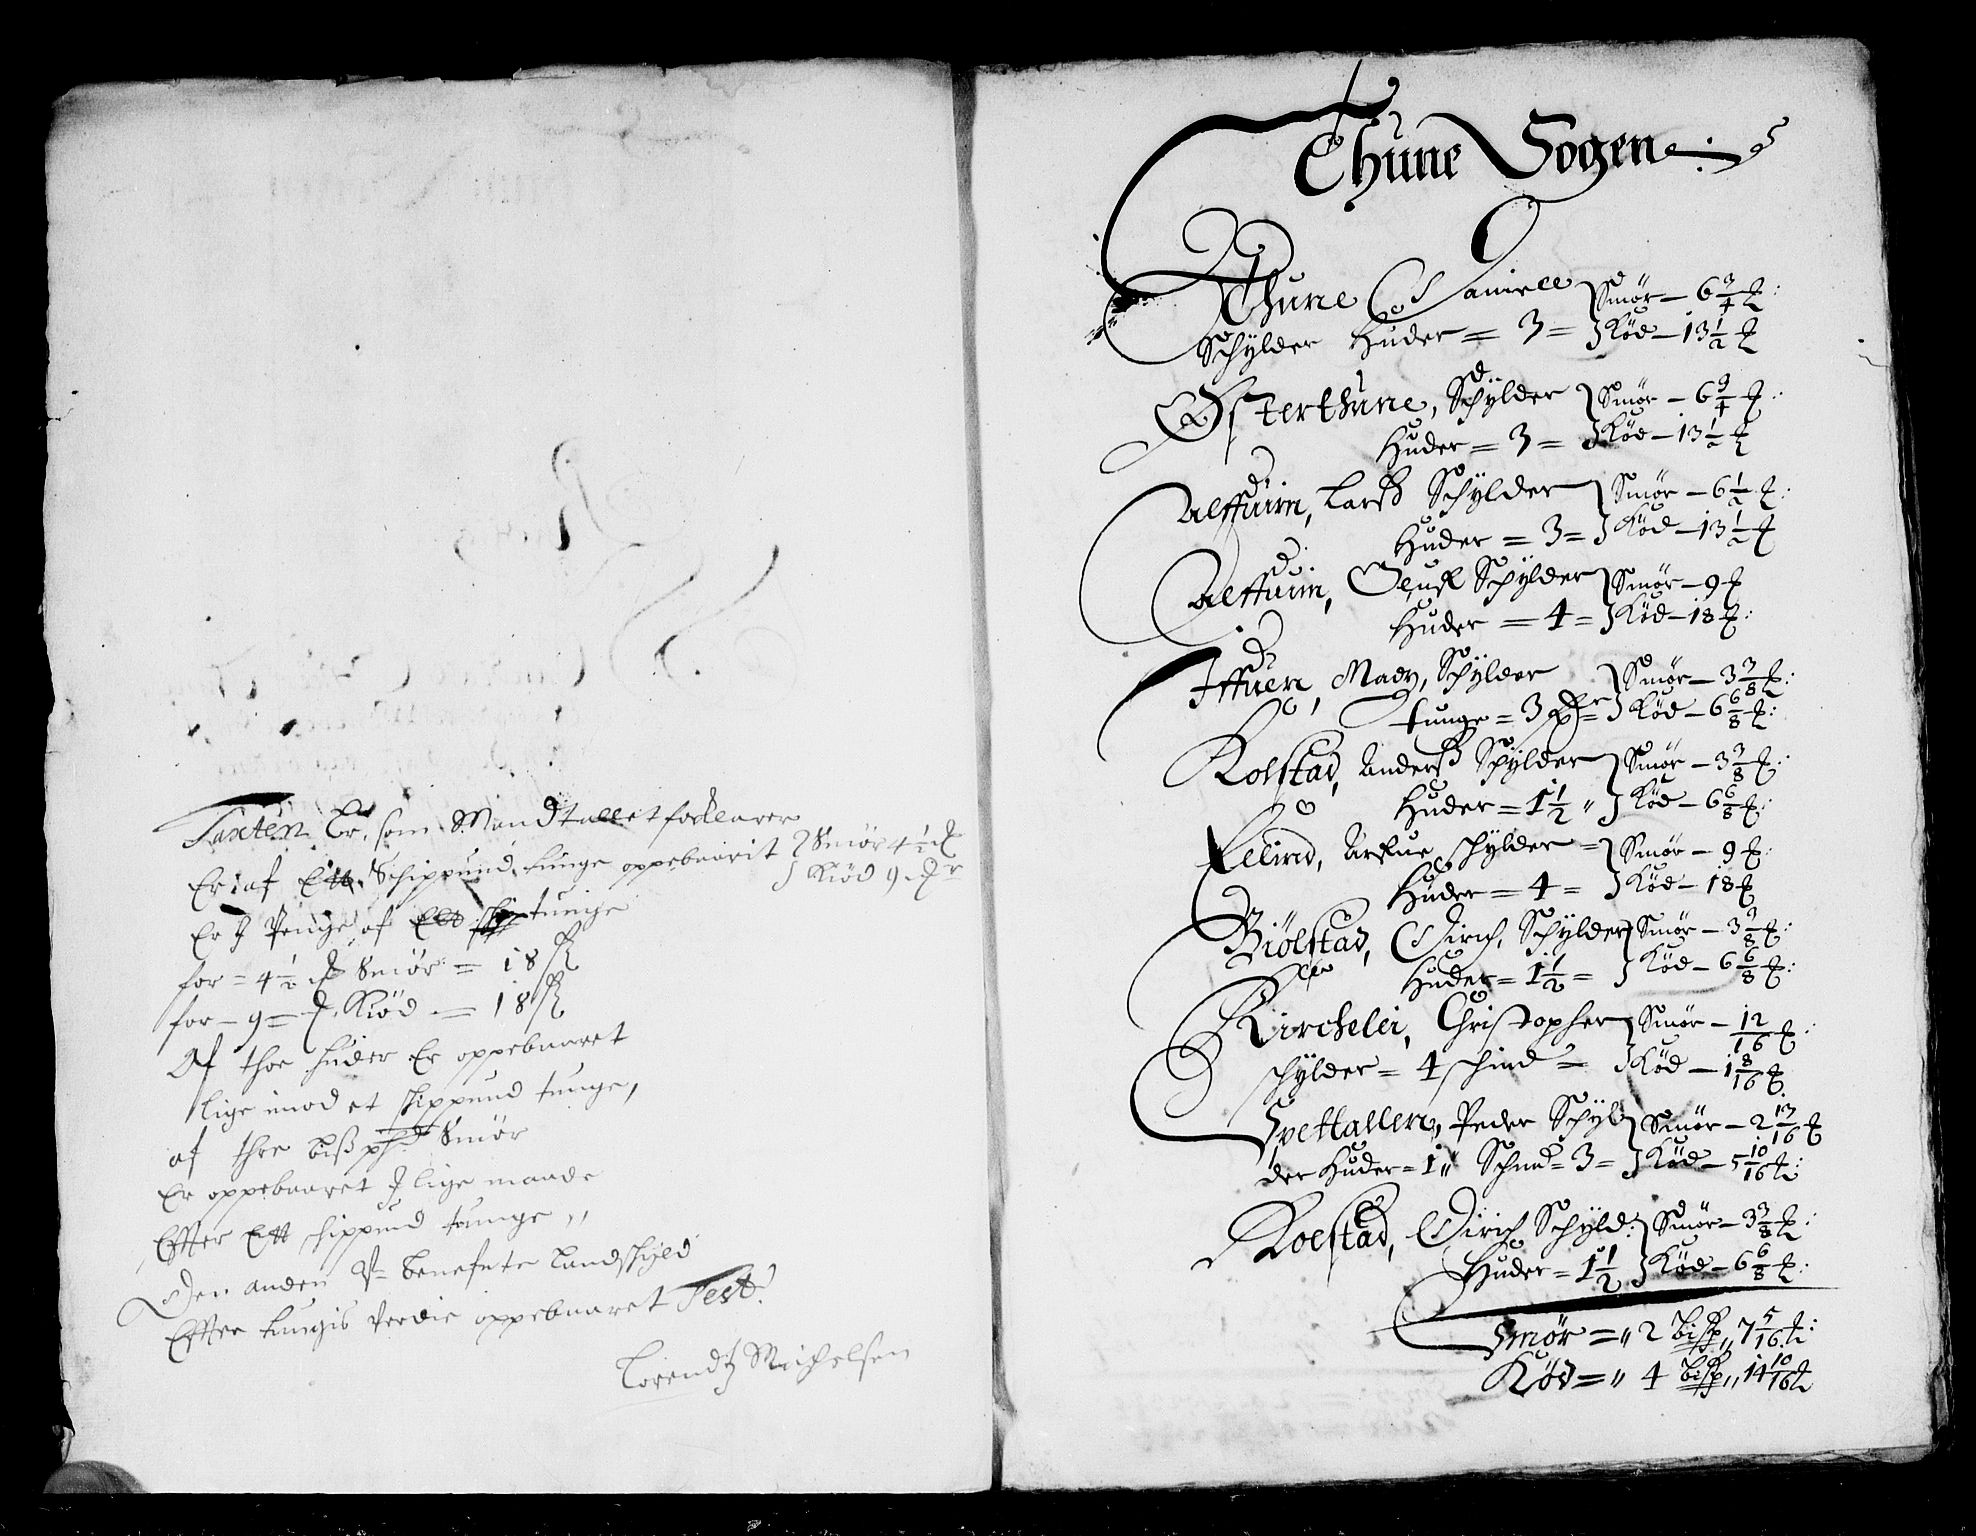 Taxten Er, som Mandtallet forklarer
Er af Ett Schippund tunge oppebaarit } Smör 4 1/2 ℔
} Kiöd 9 ℔
Er J Penge af Ett tunge
for = 4 1/2 ℔ Smör = 18 ß
for – 9 = ℔ Kiöd = 18 ß
Af thoe huder Er oppebaaret
lige imod et schippund tunge,
af thre bißpd Smör
Er oppebaaret J lige maade
Effter Ett schippund tunge ,,
Den anden benefnte Landschyld
Effter tungis Verdie oppebaaret Test.
Lorendtz Michelsen
Thune Sogen
Thune Daniell } Smör – 6 3/4 ℔
Schylder Huder = 3 = } Köd – 13 1/2 ℔
Østerthune, Schylder } Smör – 6 3/4 ℔
Huder = 3 = } Köd – 13 1/2 ℔
Alffuim, Larß Schylder } Smör – 6 1/2 ℔
Huder = 3 = } Köd – 13 1/2 ℔
Alffuim, Oluff Schylder } Smör – 9 ℔
Huder = 4 = } Köd – 18 ℔
Jffuen, Madz, Schylder } Smör – 3 3/8 ℔
tunge = 3 = } Köd – 6 6/8 ℔
Kolstad, Anderß Schylder } Smör – 3 3/8 ℔
Huder = 1 1/2 ,, } Köd – 6 6/8 ℔
Ellind, Arffue schylder = } Smör – 9 ℔
Huder = 4 = } Köd – 18 ℔
Biölstad, Dirich, Schylder } Smör – 3 3/8 ℔
Huder = 1 1/2 = } Köd – 6 6/8 ℔
Kirchelei, Christopher } Smör – 12/16 ℔
schylder = 4 schind = } Köd – 1 8/16 ℔
Spettallen, Peder Schyl } Smör – 2 13/16 ℔
der Huder = 1 ,, Schind = 3 = } Köd – 5 10/16 ℔
Kolstad, Dirich Schyld: } Smör – 3 3/8 ℔
Huder = 1 1/2 } Köd – 6 6/8 ℔
Smör = ,, 2 bißp ,, 7 5/16 ℔
Köd = ,, 4 bißp ,, 14 10/16 ℔